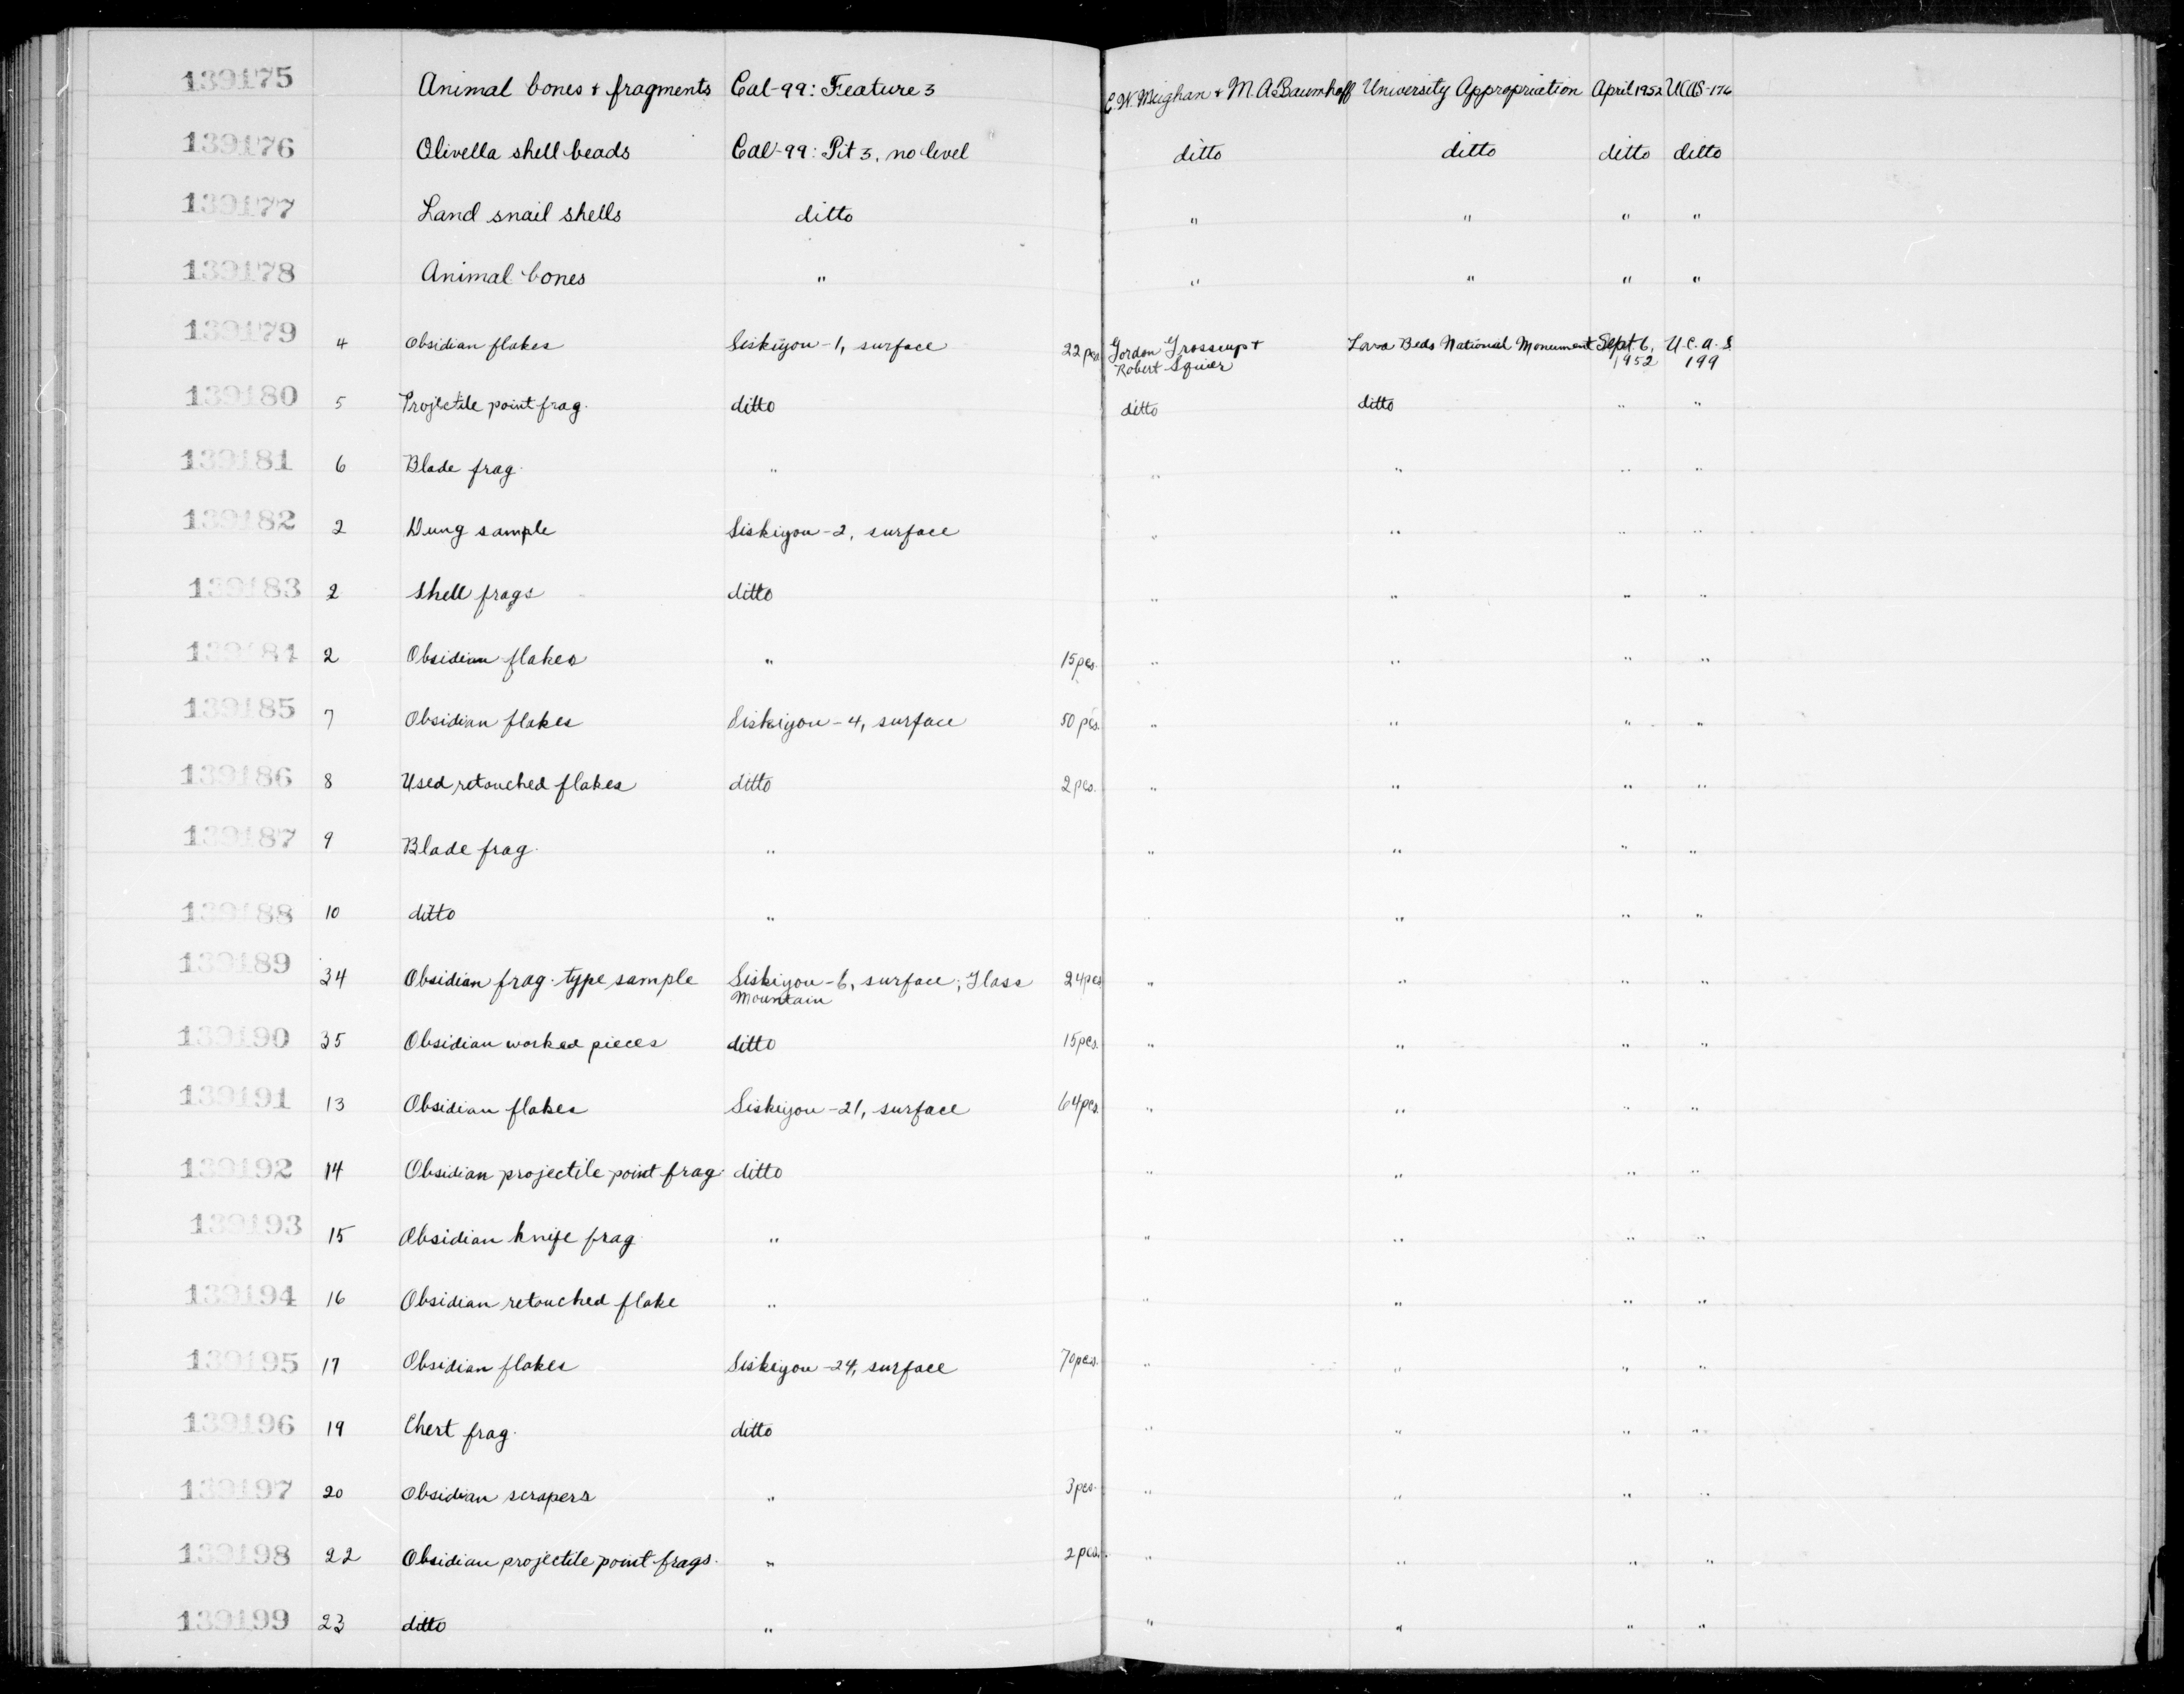 139175 Animal bones & fragments Cal-99: Feature 3 C.W. Meighan & M.A. Baumhoff University Appropriation April 1952 UCAS-176
139176 Olivella shell beads Cal-99: Pit 3, no level ditto ditto ditto ditto
139177 Land snail shells ditto " " " "
139178 Animal bones " " " " "
139179 4 Obsidian flakes Siskiyou-1, surface 22 pcs. Gordon Grosscup + Lava Beds National Monument Sept. 6, U.C.A.S.
Robert Squier 1952 199
139180 5 Projectile point frag. ditto ditto ditto " "
139181 6 Blade frag. " " " " "
139182 2 Dung sample Siskiyou-2, surface " " " "
139183 2 Shell frags ditto " " " "
139184 2 Obsidian flakes " 15 pcs. " " " "
139185 7 Obsidian flakes Siskiyou-4, surface 50 pcs. " " " "
139186 8 Used retouched flakes ditto 2 pcs. " " " "
139187 9 Blade frag. " " " " "
139188 10 ditto " " " " "
139189 34 Obsidian frag. type sample Siskiyou-6, surface; Glass 24 pcs " " " "
Mountain
139190 35 Obsidian worked pieces ditto 15 pcs. " " " "
139191 13 Obsidian flakes Siskiyou-21, surface 64 pcs. " " " "
139192 14 Obsidian projectile point frag. ditto " " " "
139193 15 Obsidian knife frag. " " " " "
139194 16 Obsidian retouched flake " " " " "
139195 17 Obsidian flakes Siskiyou-24, surface 70 pcs. " " " "
139196 19 Chert frag. ditto " " " "
139197 20 Obsidian scrapers " 3 pcs. " " " "
139198 22 Obsidian projectile point frags. " 2 pcs. " " " "
139199 23 ditto " " " " "